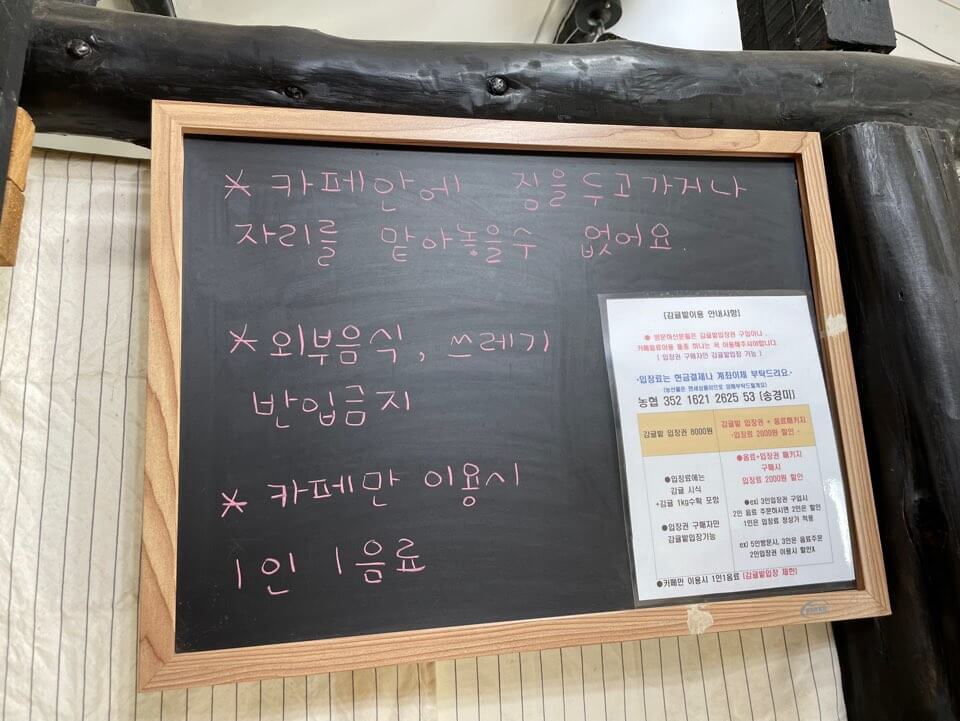 * 카페안에 짐을두고가거나
자리를 맡아놓을수 없어요.
* 외부음식, 쓰레기
반입금지
* 카페만 이용시
1인 1음료
[감귤밭이용 안내사항]
● 방문하신분들은 감귤밭입장권 구입이나,
카페음료이용 둘중 하나는 꼭 이용해주셔야합니다.
( 입장권 구매자만 감귤밭입장 가능 )
-입장료는 현금결제나 계좌이체 부탁드려요-
(농산물은 면세상품이므로 양해부탁드릴게요)
농협 352 1621 2625 53 (송경미)
감귤밭 입장권 8000원
감귤밭 입장권 + 음료패키지
-입장료 2000원 할인 -
●입장료에는
감귤 시식
+감귤 1kg수확 포함
●입장권 구매자만
감귤밭입장가능
●음료+입장권 패키지
구매시
입장료 2000원 할인
●ex) 3인입장권 구입시
2인 음료 주문하시면 2인은 할인
1인은 입장료 정상가 적용
ex) 5인방문시, 3인은 음료주문
2인입장권 이용시 할인X
●카페만 이용시 1인1음료 (감귤밭입장 제한)